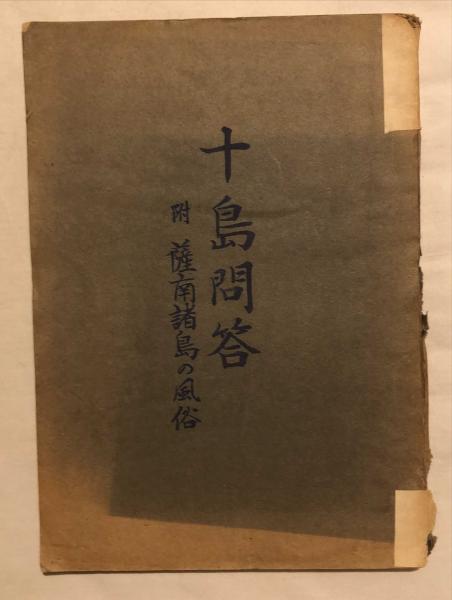 十島問答
附 薩南諸島の風俗